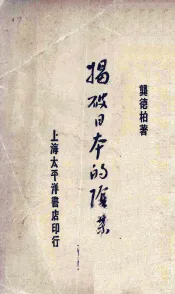 龔德柏著
揭破日本的陰業
上海太平洋書店印行